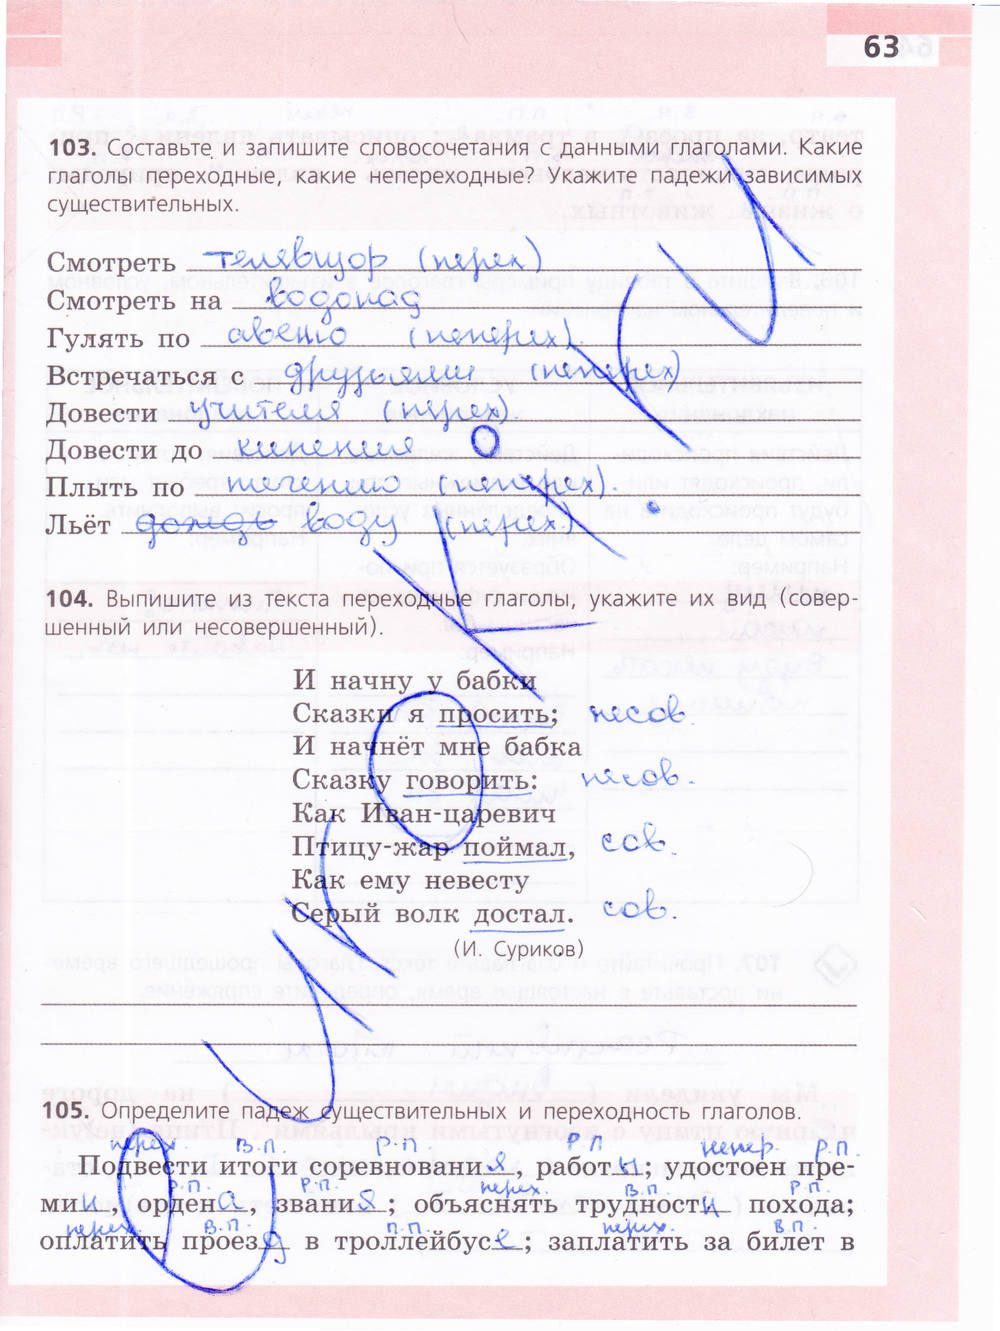 63
103. Составьте и запишите словосочетания с данными глаголами. Какие
глаголы переходные, какие непереходные? Укажите падежи зависимых
существительных.
Смотреть телевизор (перех)
Смотреть на водопад
Гулять по (неперех)
Встречаться с друзьями (неперех)
Довести учителя (перех).
Довести до кипения
Плыть по течению (неперех).
Льёт дождь воду (перех.)
104. Выпишите из текста переходные глаголы, укажите их вид (совер-
шенный или несовершенный).
И начну у бабки
Сказки я просить; несов.
И начнёт мне бабка
Сказку говорить: несов.
Как Иван-царевич
Птицу-жар поймал, сов.
Как ему невесту
Серый волк достал. сов.
(И. Суриков)
105. Определите падеж существительных и переходность глаголов.
перех. В.П. Р.П Р.П. непер. Р.П.
Подвести итоги соревнования, работы; удостоен пре-
мии, ордена, звания; объяснять трудности похода;
Р.П. Р.П. перех. В.П. Р.П.
перех. В.П. П.П. перех. В.П.
оплатить проезд в троллейбусе; заплатить за билет в